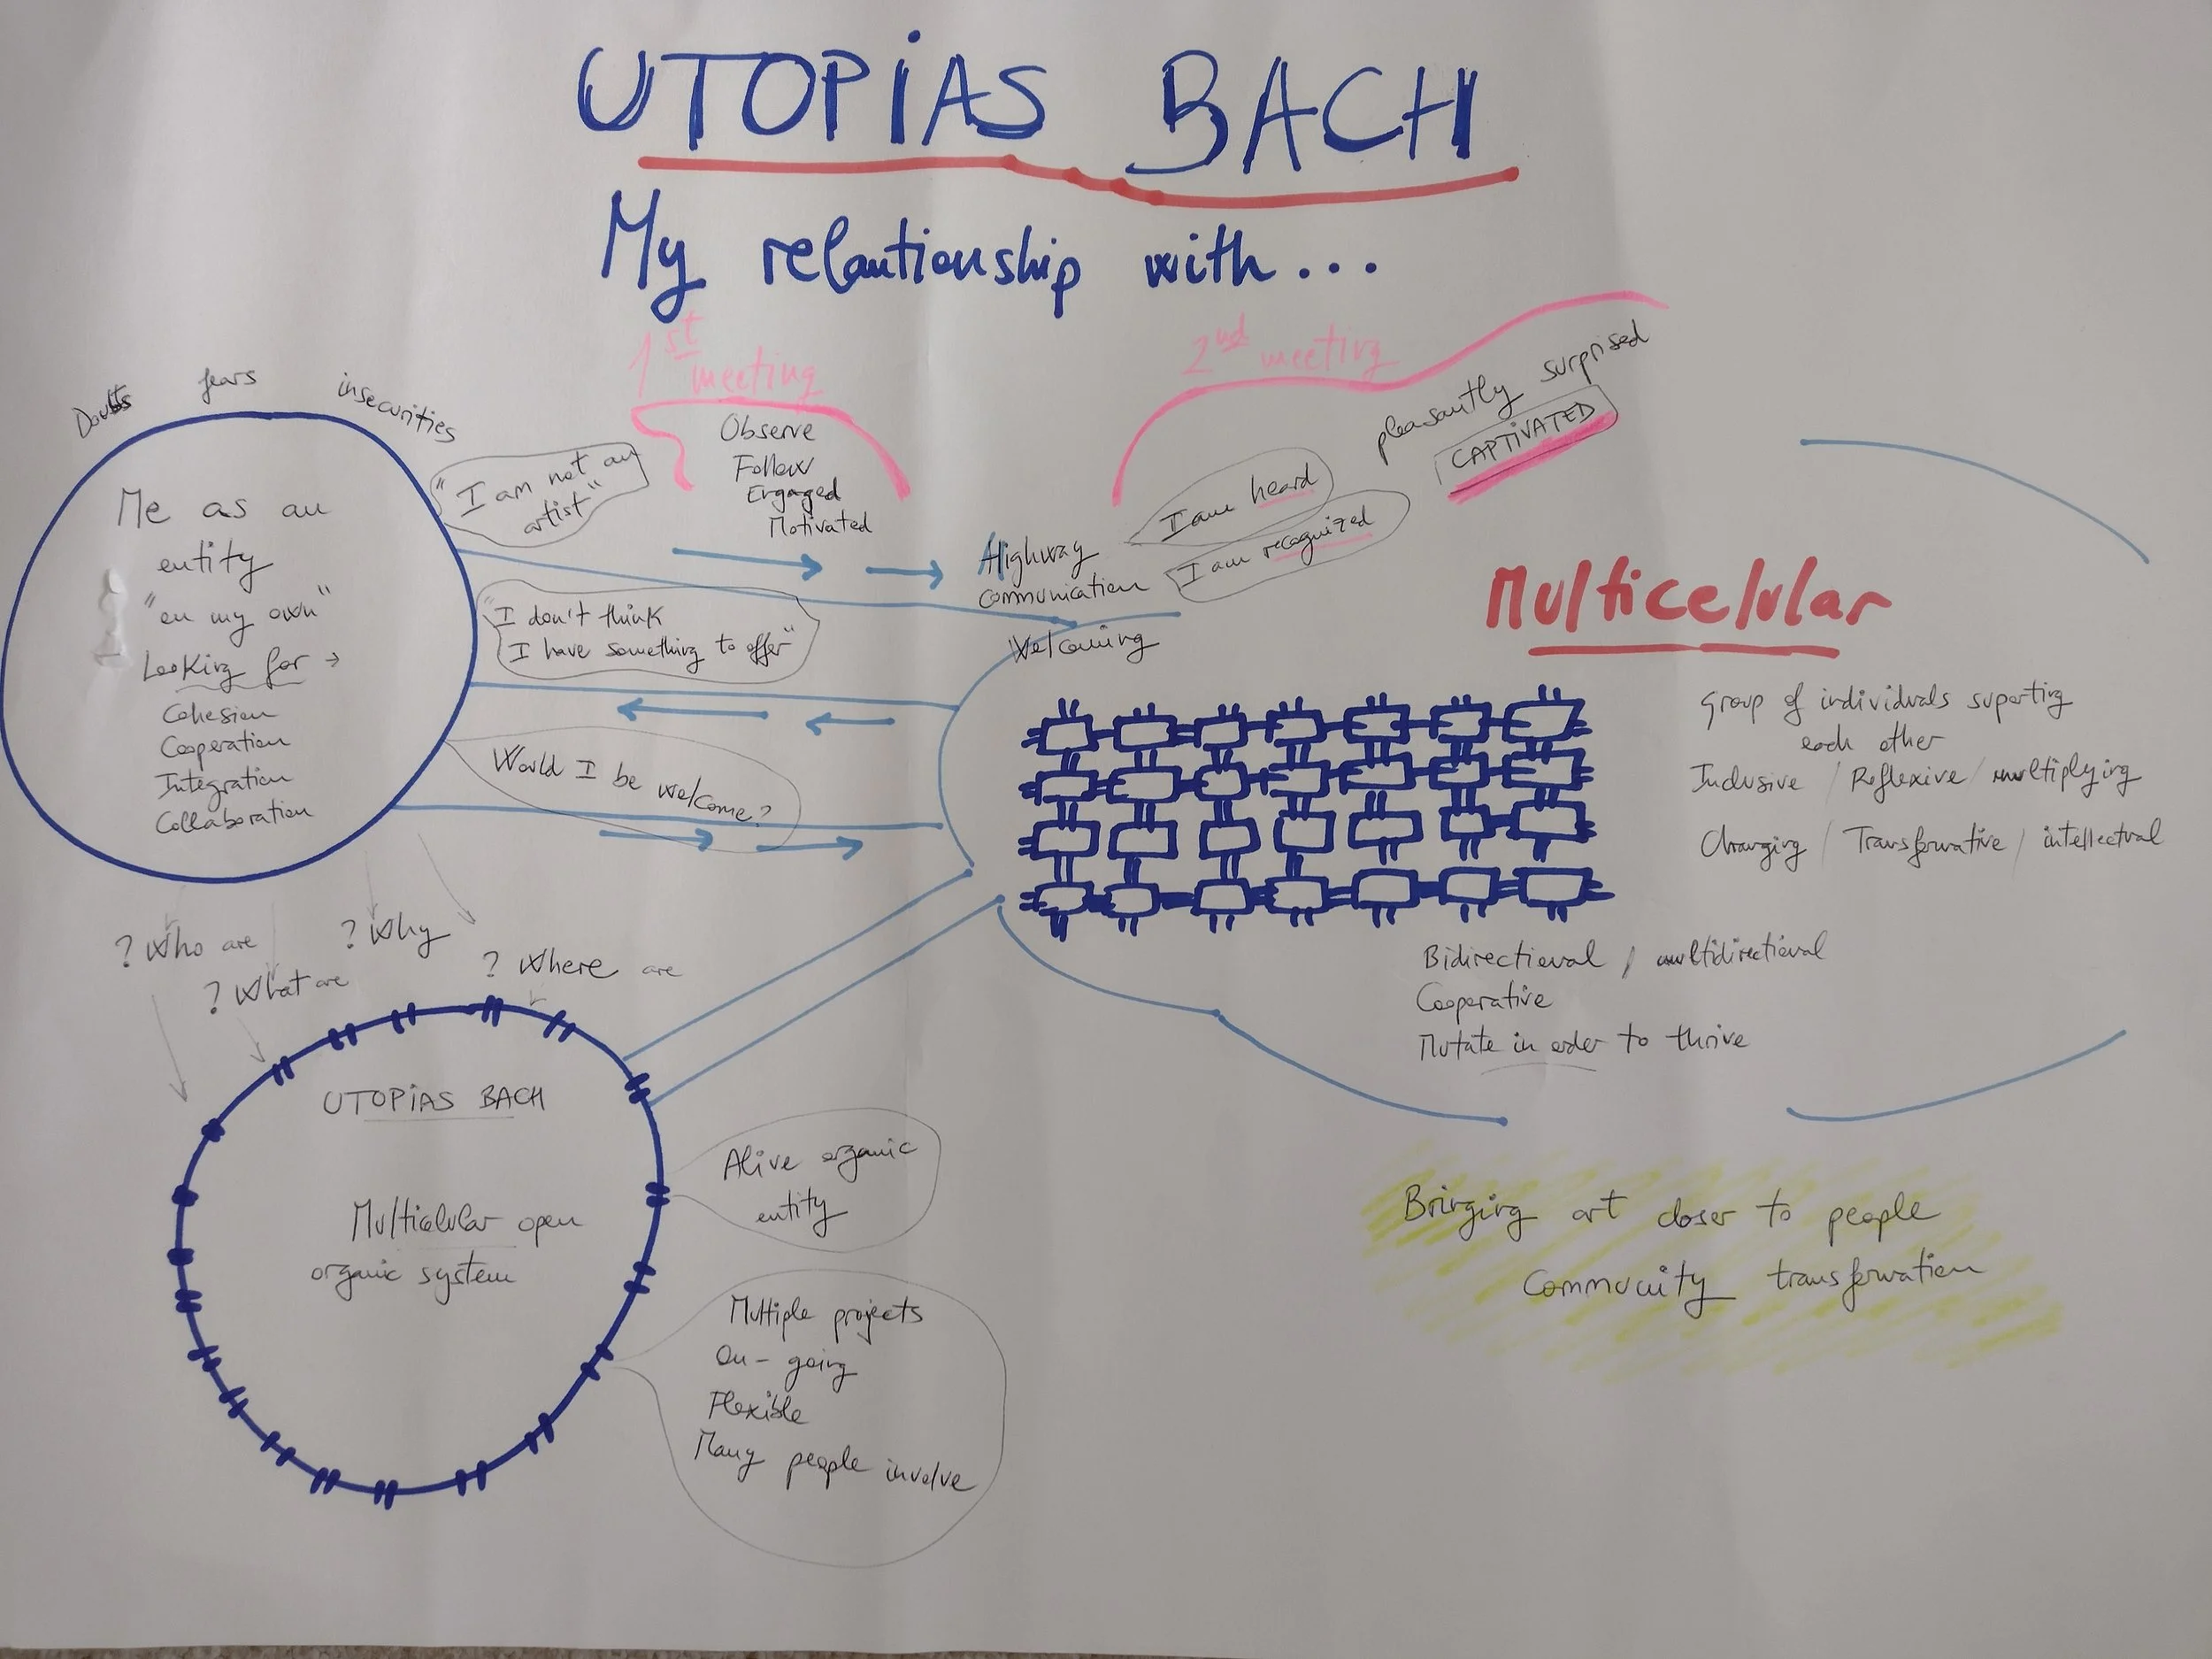 UTOPIAS BACH
My relantionship with...
1st meeting
2nd meeting
Doubts fears insecurities
Me as an
entity
"on my own"
Looking for →
Cohesion
Cooperation
Integration
Collaboration
"I am not an
artist"
Observe
Follow
Engaged
Motivated
"I don't think
I have something to offer"
Would I be welcome?
Highway
Communication
Welcoming
I am heard
I am recognized
pleasantly surprised
CAPTIVATED
Multicelular
Group of individuals suporting
each other
Inclusive / Reflexive / multiplying
Changing / Transformative / intellectual
Bidirectional / multidirectional
Cooperative
Mutate in order to thrive
? Who are
? What are
? Why
? Where are
UTOPIAS BACH
Multicelular open
organic system
Alive organic
entity
Multiple projects
On-going
Flexible
Many people involve
Bringing art closer to people
Community transformation